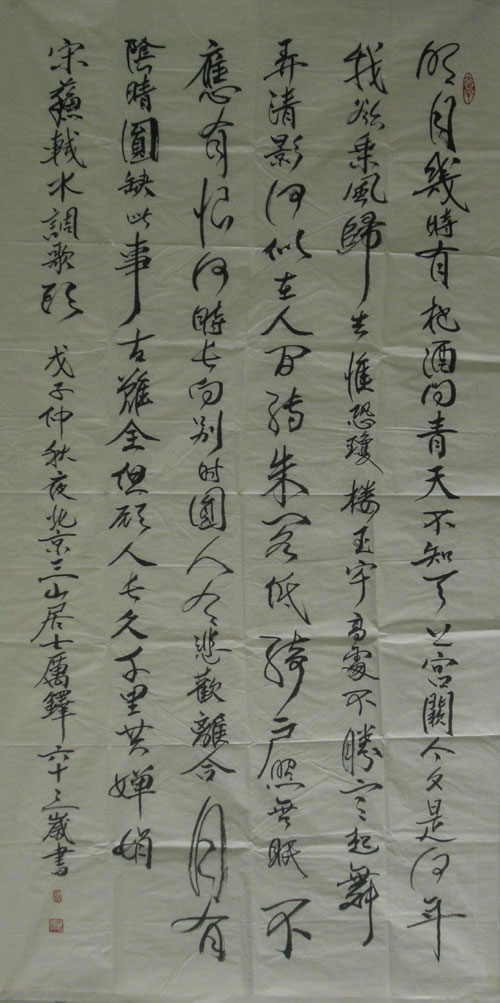 明月幾時有把酒問青天不知天上宮闕今夕是何年
我欲乘風歸去惟恐瓊樓玉宇高處不勝寒起舞
弄清影何似在人間轉朱閣低綺戶照無眠不
應有恨何時長向別時圓人有悲歡離合月有
陰晴圓缺此事古難全但願人長久千里共嬋娟
宋蘇軾水調歌頭 戊子仲秋夜北京三山居士厲鐸六十三歲書